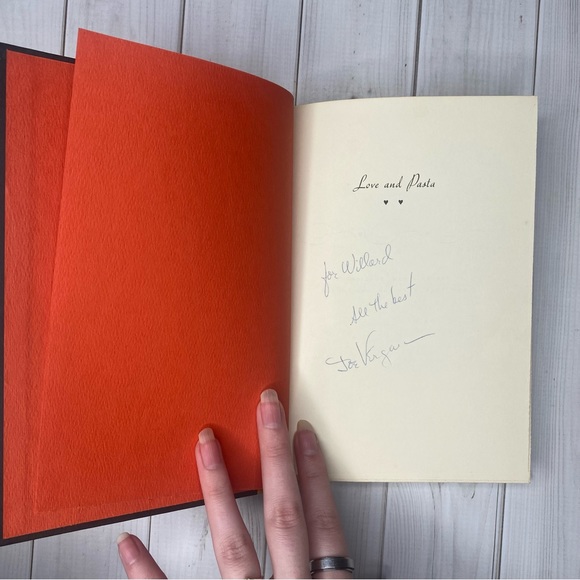 Love and Pasta
for Willard
All the best
Joe Vergara